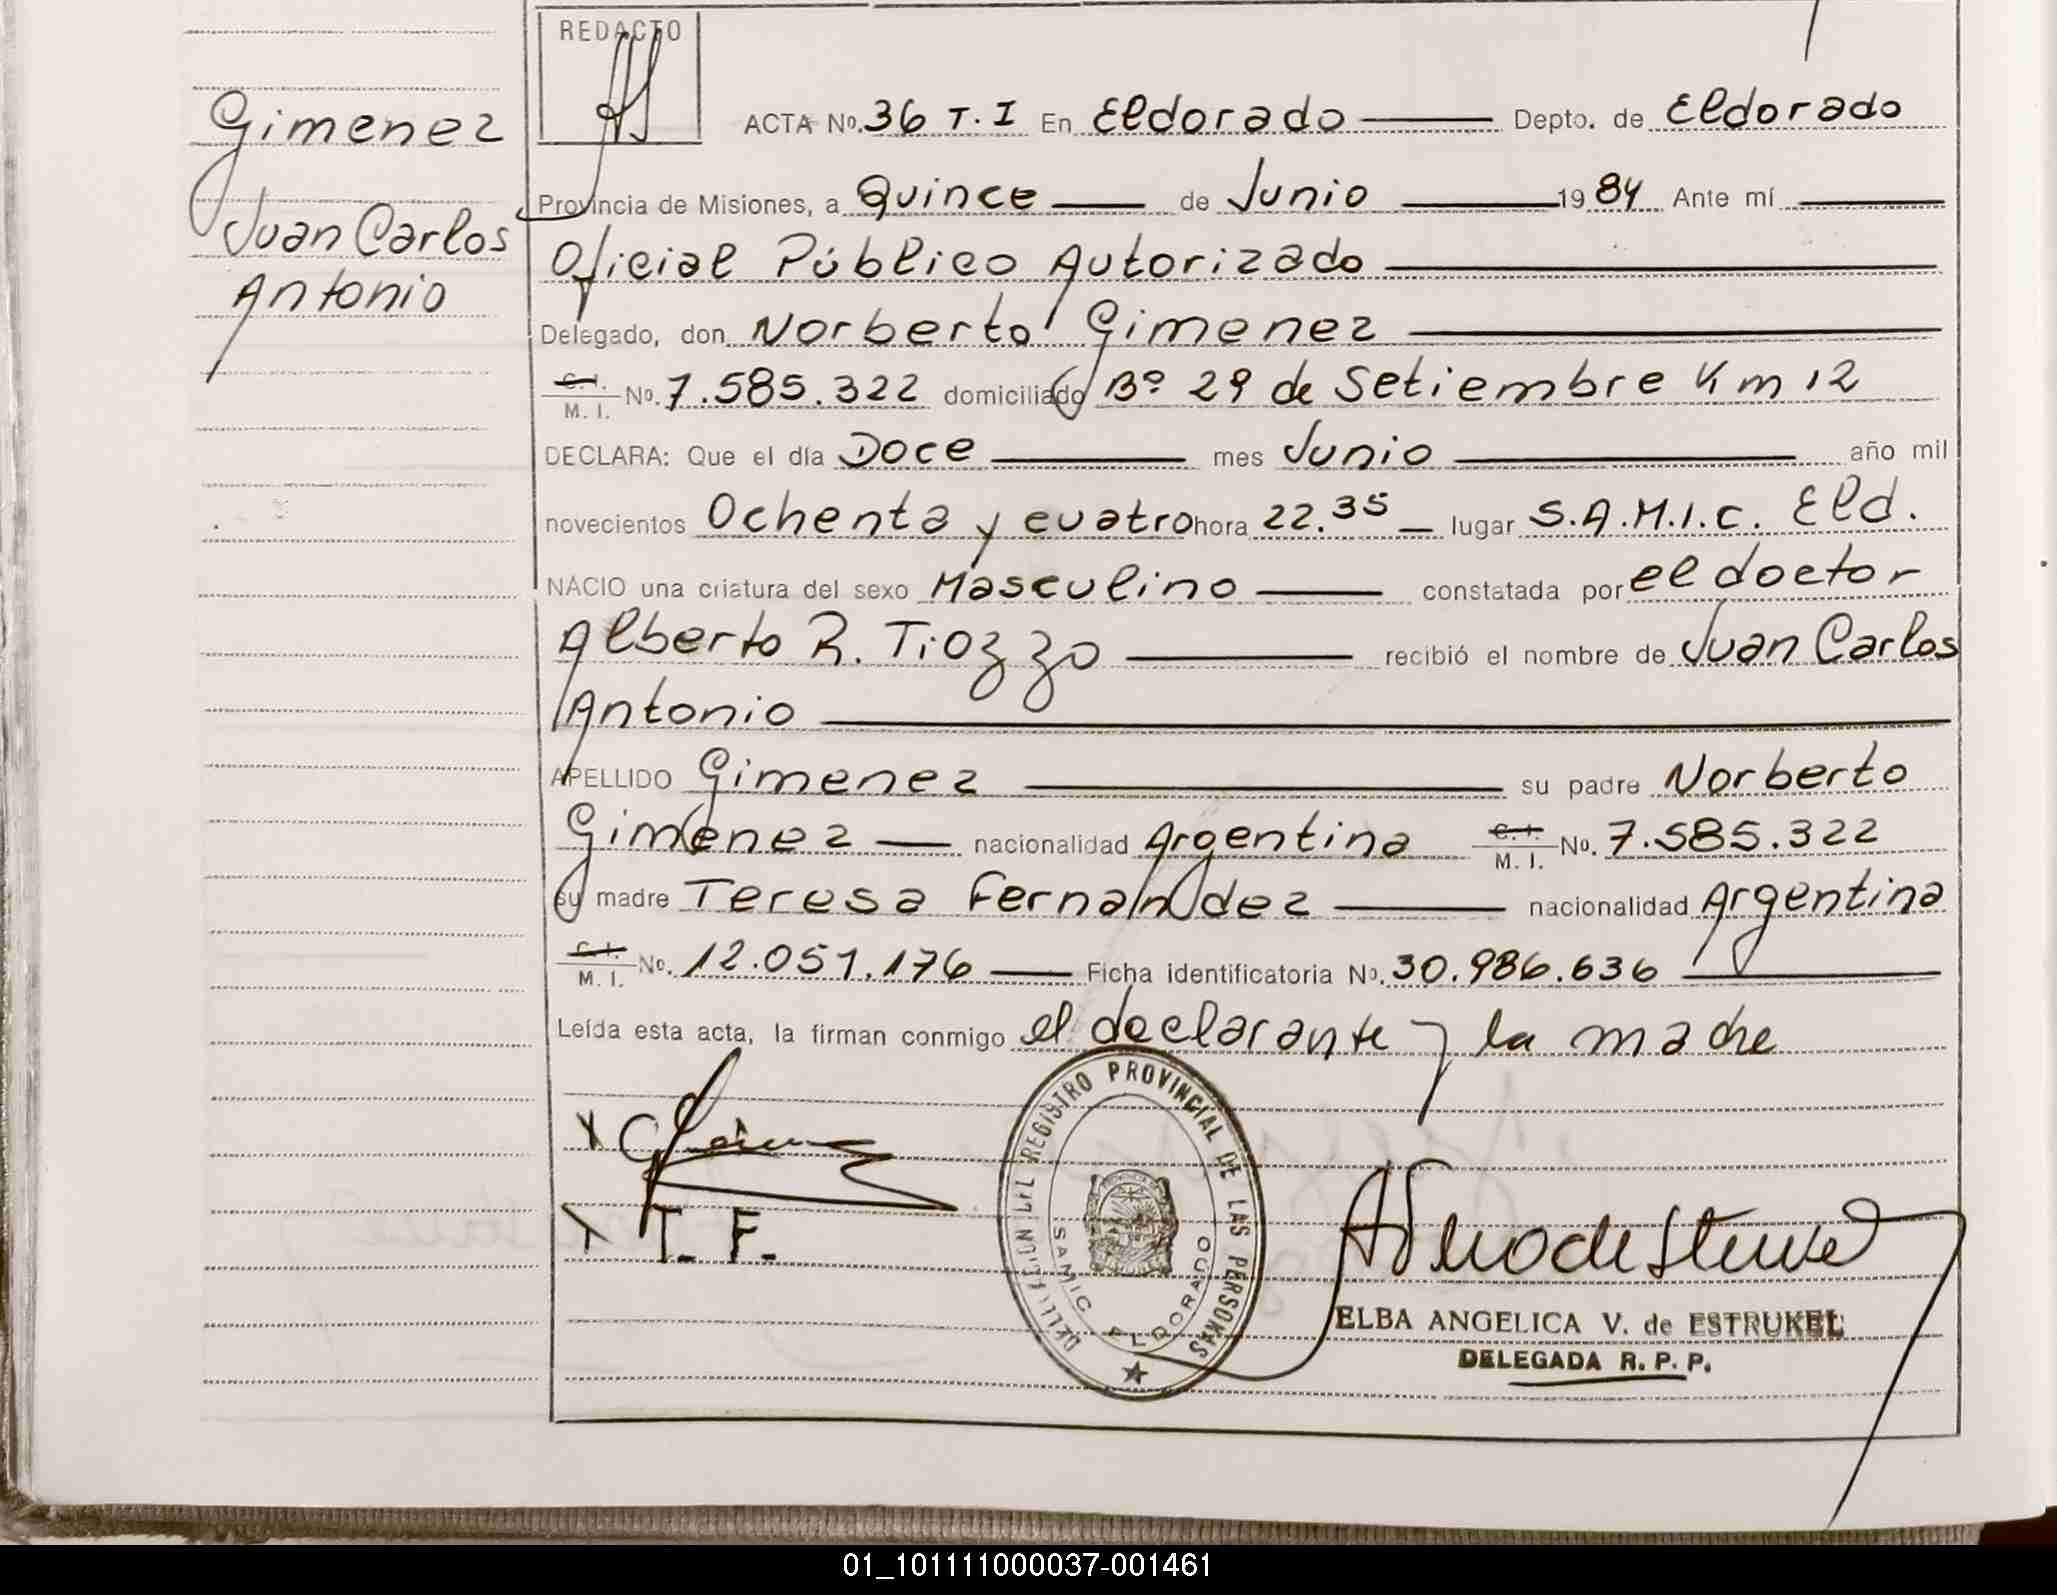 REDACTO
Gimenez
Juan Carlos
Antonio
ACTA Nº. 36 T.I En Eldorado Depto. de Eldorado
Provincia de Misiones, a Quince de Junio 1984 Ante mí
Oficial Público Autorizado
Delegado, don Norberto Gimenez
C. I.
M. I. Nº. 7.585.322 domiciliado Bº 29 de Setiembre Km 12
DECLARA: Que el día Doce mes Junio año mil
novecientos Ochenta y cuatro hora 22.35 lugar S.A.M.I.C. Eld.
NACIO una criatura del sexo Masculino constatada por el doctor
Alberto R. Tiozzo recibió el nombre de Juan Carlos
Antonio
APELLIDO Gimenez su padre Norberto
Gimenez nacionalidad Argentina C. I. M. I. Nº. 7.585.322
su madre Teresa Fernandez nacionalidad Argentina
C. I.
M. I. Nº. 12.051.176 Ficha identificatoria Nº. 30.986.636
Leída esta acta, la firman conmigo el declarante y la madre
T. F.
DELEGACION DEL REGISTRO PROVINCIAL DE LAS PERSONAS
SAMIC ELDORADO
ELBA ANGELICA V. de ESTRUKEL
DELEGADA R. P. P.
01_101111000037-001461